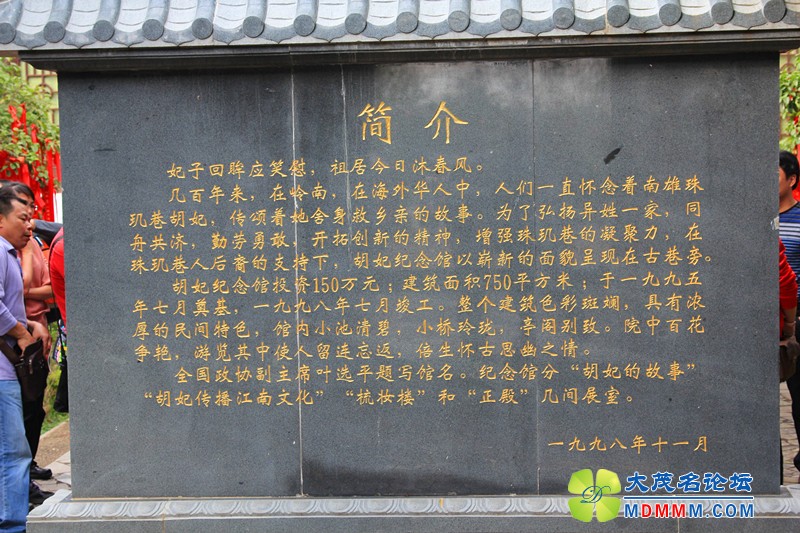 简介
妃子回眸应笑慰，祖居今日沐春风。
几百年来，在岭南，在海外华人中，人们一直怀念着南雄珠
玑巷胡妃，传颂着她舍身救乡亲的故事。为了弘扬异姓一家，同
舟共济，勤劳勇敢，开拓创新的精神，增强珠玑巷的凝聚力，在
珠玑巷人后裔的支持下，胡妃纪念馆以崭新的面貌呈现在古巷旁。
胡妃纪念馆投资150万元；建筑面积750平方米；于一九九五
年七月奠基，一九九八年七月竣工。整个建筑色彩斑斓，具有浓
厚的民间特色，馆内小池清碧，小桥玲珑，亭阁别致。院中百花
争艳，游览其中使人留连忘返，倍生怀古思幽之情。
全国政协副主席叶选平题写馆名。纪念馆分“胡妃的故事”
“胡妃传播江南文化”“梳妆楼”和“正殿”几间展室。
一九九八年十一月
大茂名论坛
MDMMM.COM